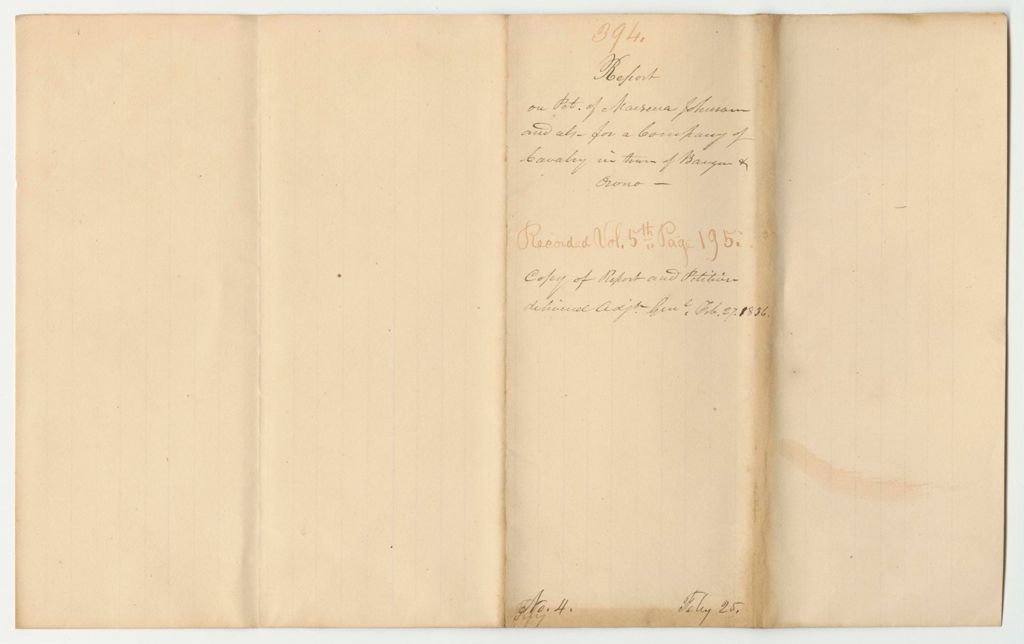 394.
Report
on Pet. of Marsena Johnson
and als for a Company of
Cavalry in town of Bangor &
Orono —
Recorded Vol. 5th Page 195.
Copy of Report and Petition
delivered Adjt. Genl. Feb. 27. 1836.
No. 4. Feby 25.